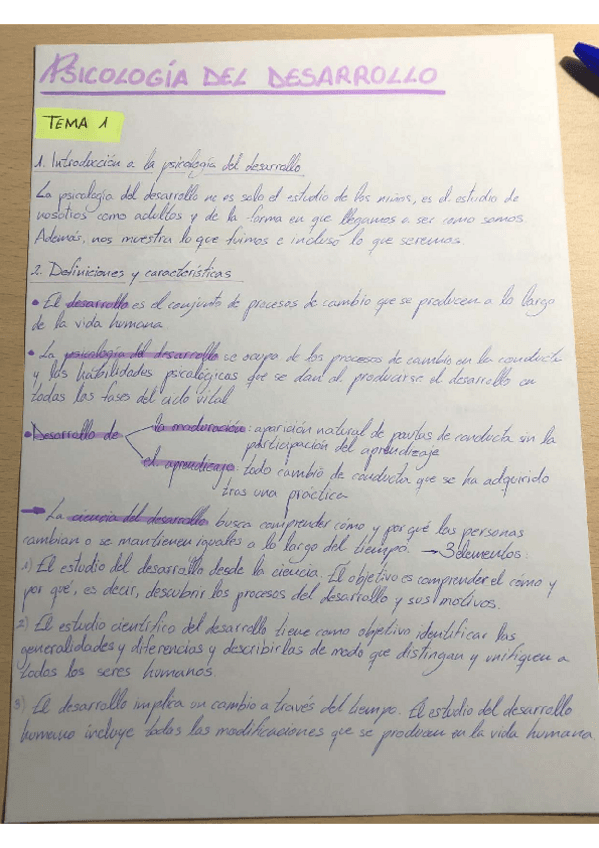 PSICOLOGÍA DEL DESARROLLO
TEMA 1
1. Introducción a la psicología del desarrollo
La psicología del desarrollo no es solo el estudio de los niños, es el estudio de
nosotros como adultos y de la forma en que llegamos a ser como somos.
Además, nos muestra lo que fuimos e incluso lo que seremos.
2. Definiciones y características
• El desarrollo es el conjunto de procesos de cambio que se producen a lo largo
de la vida humana
• La psicología del desarrollo se ocupa de los procesos de cambio en la conducta
y las habilidades psicológicas que se dan al producirse el desarrollo en
todas las fases del ciclo vital
• Desarrollo de
la maduración: aparición natural de pautas de conducta sin la
participación del aprendizaje
el aprendizaje: todo cambio de conducta que se ha adquirido
tras una práctica
→ La ciencia del desarrollo busca comprender cómo y por qué las personas
cambian o se mantienen iguales a lo largo del tiempo. → 3 elementos:
1) El estudio del desarrollo desde la ciencia. El objetivo es comprender el cómo y
por qué, es decir, descubrir los procesos del desarrollo y sus motivos.
2) El estudio científico del desarrollo tiene como objetivo identificar las
generalidades y diferencias y describirlas de modo que distingan y unifiquen a
todos los seres humanos.
3) El desarrollo implica un cambio a través del tiempo. El estudio del desarrollo
humano incluye todas las modificaciones que se producen en la vida humana